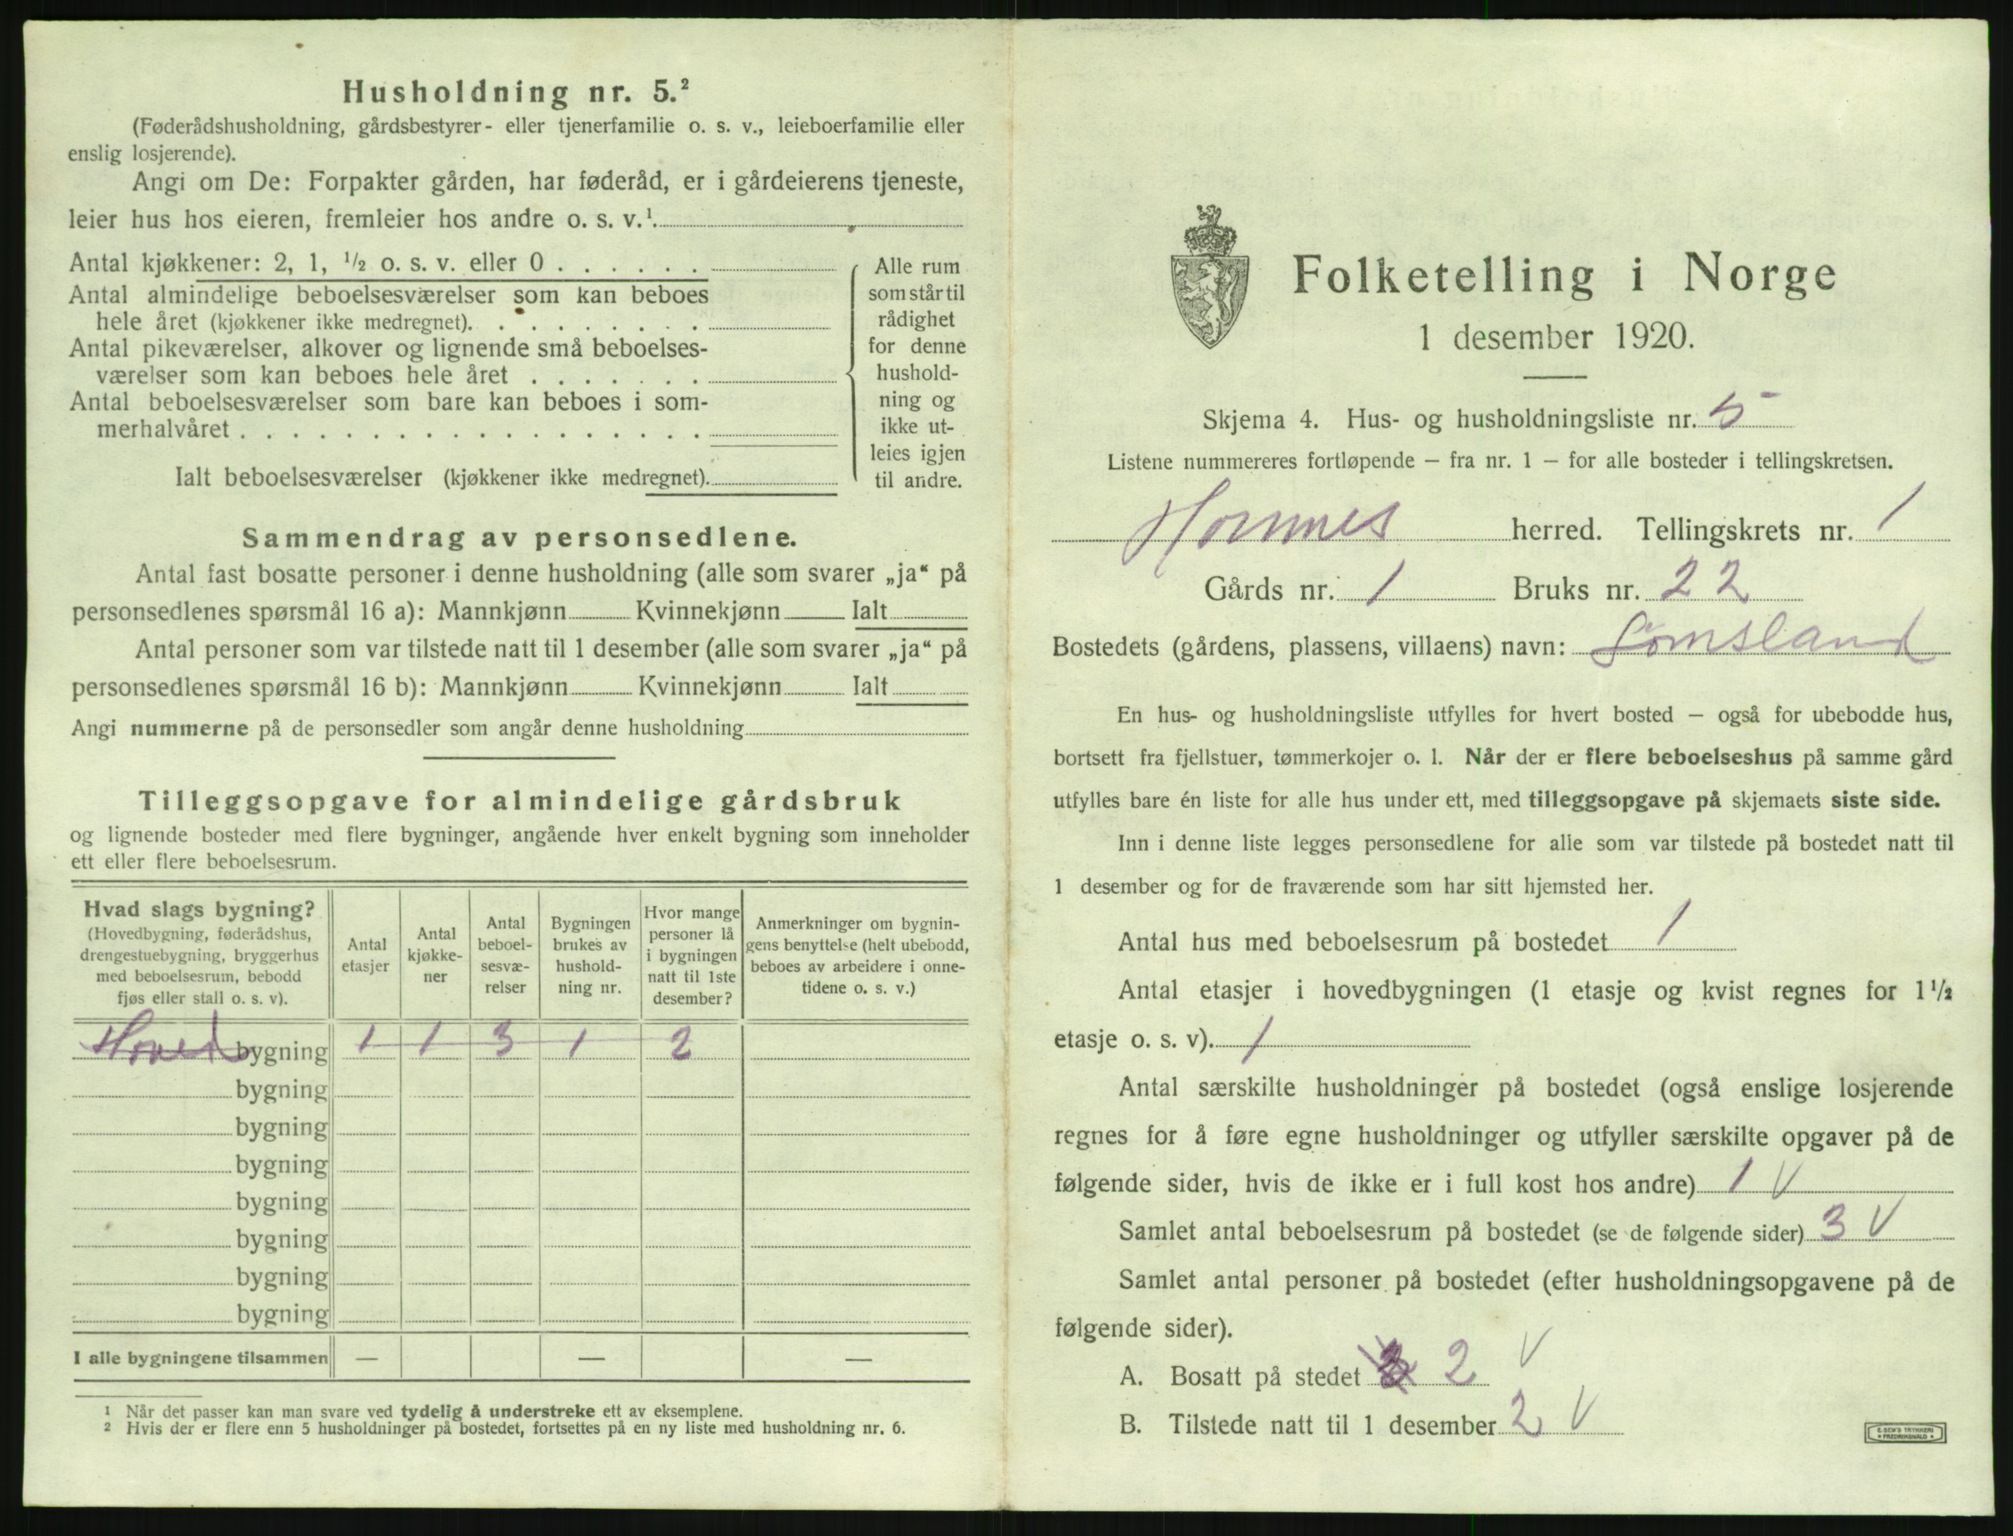 Husholdning nr. 5.²
(Føderådshusholdning, gårdsbestyrer- eller tjenerfamilie o. s. v., leieboerfamilie eller
enslig losjerende).
Angi om De: Forpakter gården, har føderåd, er i gårdeierens tjeneste,
leier hus hos eieren, fremleier hos andre o. s. v.¹
Antal kjøkkener: 2, 1, ½ o. s. v. eller 0
Antal almindelige beboelsesværelser som kan beboes
hele året (kjøkkener ikke medregnet).
Antal pikeværelser, alkover og lignende små beboelses-
værelser som kan beboes hele året
Antal beboelsesværelser som bare kan beboes i som-
merhalvåret
Ialt beboelsesværelser (kjøkkener ikke medregnet).
Alle rum
som står til
rådighet
for denne
hushold-
ning og
ikke ut-
leies igjen
til andre.
Sammendrag av personsedlene.
Antal fast bosatte personer i denne husholdning (alle som svarer „ja“ på
personsedlenes spørsmål 16 a): Mannkjønn Kvinnekjønn Ialt
Antal personer som var tilstede natt til 1 desember (alle som svarer „ja“ på
personsedlenes spørsmål 16 b): Mannkjønn Kvinnekjønn Ialt
Angi nummerne på de personsedler som angår denne husholdning
Tilleggsopgave for almindelige gårdsbruk
og lignende bosteder med flere bygninger, angående hver enkelt bygning som inneholder
ett eller flere beboelsesrum.
Hvad slags bygning?
(Hovedbygning, føderådshus,
drengestuebygning, bryggerhus
med beboelsesrum, bebodd
fjøs eller stall o. s. v).
Antal
etasjer
Antal
kjøkke-
ner
Antal
beboel-
sesvæ-
relser
Bygningen
brukes av
hushold-
ning nr.
Hvor mange
personer lå
i bygningen
natt til 1ste
desember?
Anmerkninger om bygnin-
gens benyttelse (helt ubebodd,
beboes av arbeidere i onne-
tidene o. s. v.)
Hovedbygning 1 1 3 1 2
bygning
bygning
bygning
bygning
bygning
bygning
bygning
I alle bygningene tilsammen — — —
1 Når det passer kan man svare ved tydelig å understreke ett av eksemplene.
2 Hvis der er flere enn 5 husholdninger på bostedet, fortsettes på en ny liste med husholdning nr. 6.
Folketelling i Norge
1 desember 1920.
Skjema 4. Hus- og husholdningsliste nr. 5
Listene nummereres fortløpende – fra nr. 1 – for alle bosteder i tellingskretsen.
Hornnes herred. Tellingskrets nr. 1
Gårds nr. 1 Bruks nr. 22
Bostedets (gårdens, plassens, villaens) navn: Lømsland
En hus- og husholdningsliste utfylles for hvert bosted – også for ubebodde hus,
bortsett fra fjellstuer, tømmerkojer o. l. Når der er flere beboelseshus på samme gård
utfylles bare én liste for alle hus under ett, med tilleggsopgave på skjemaets siste side.
Inn i denne liste legges personsedlene for alle som var tilstede på bostedet natt til
1 desember og for de fraværende som har sitt hjemsted her.
Antal hus med beboelsesrum på bostedet 1
Antal etasjer i hovedbygningen (1 etasje og kvist regnes for 1½
etasje o. s. v). 1
Antal særskilte husholdninger på bostedet (også enslige losjerende
regnes for å føre egne husholdninger og utfyller særskilte opgaver på de
følgende sider, hvis de ikke er i full kost hos andre) 1 V
Samlet antal beboelsesrum på bostedet (se de følgende sider) 3 V
Samlet antal personer på bostedet (efter husholdningsopgavene på de
følgende sider).
A. Bosatt på stedet 2 V
B. Tilstede natt til 1 desember 2 V